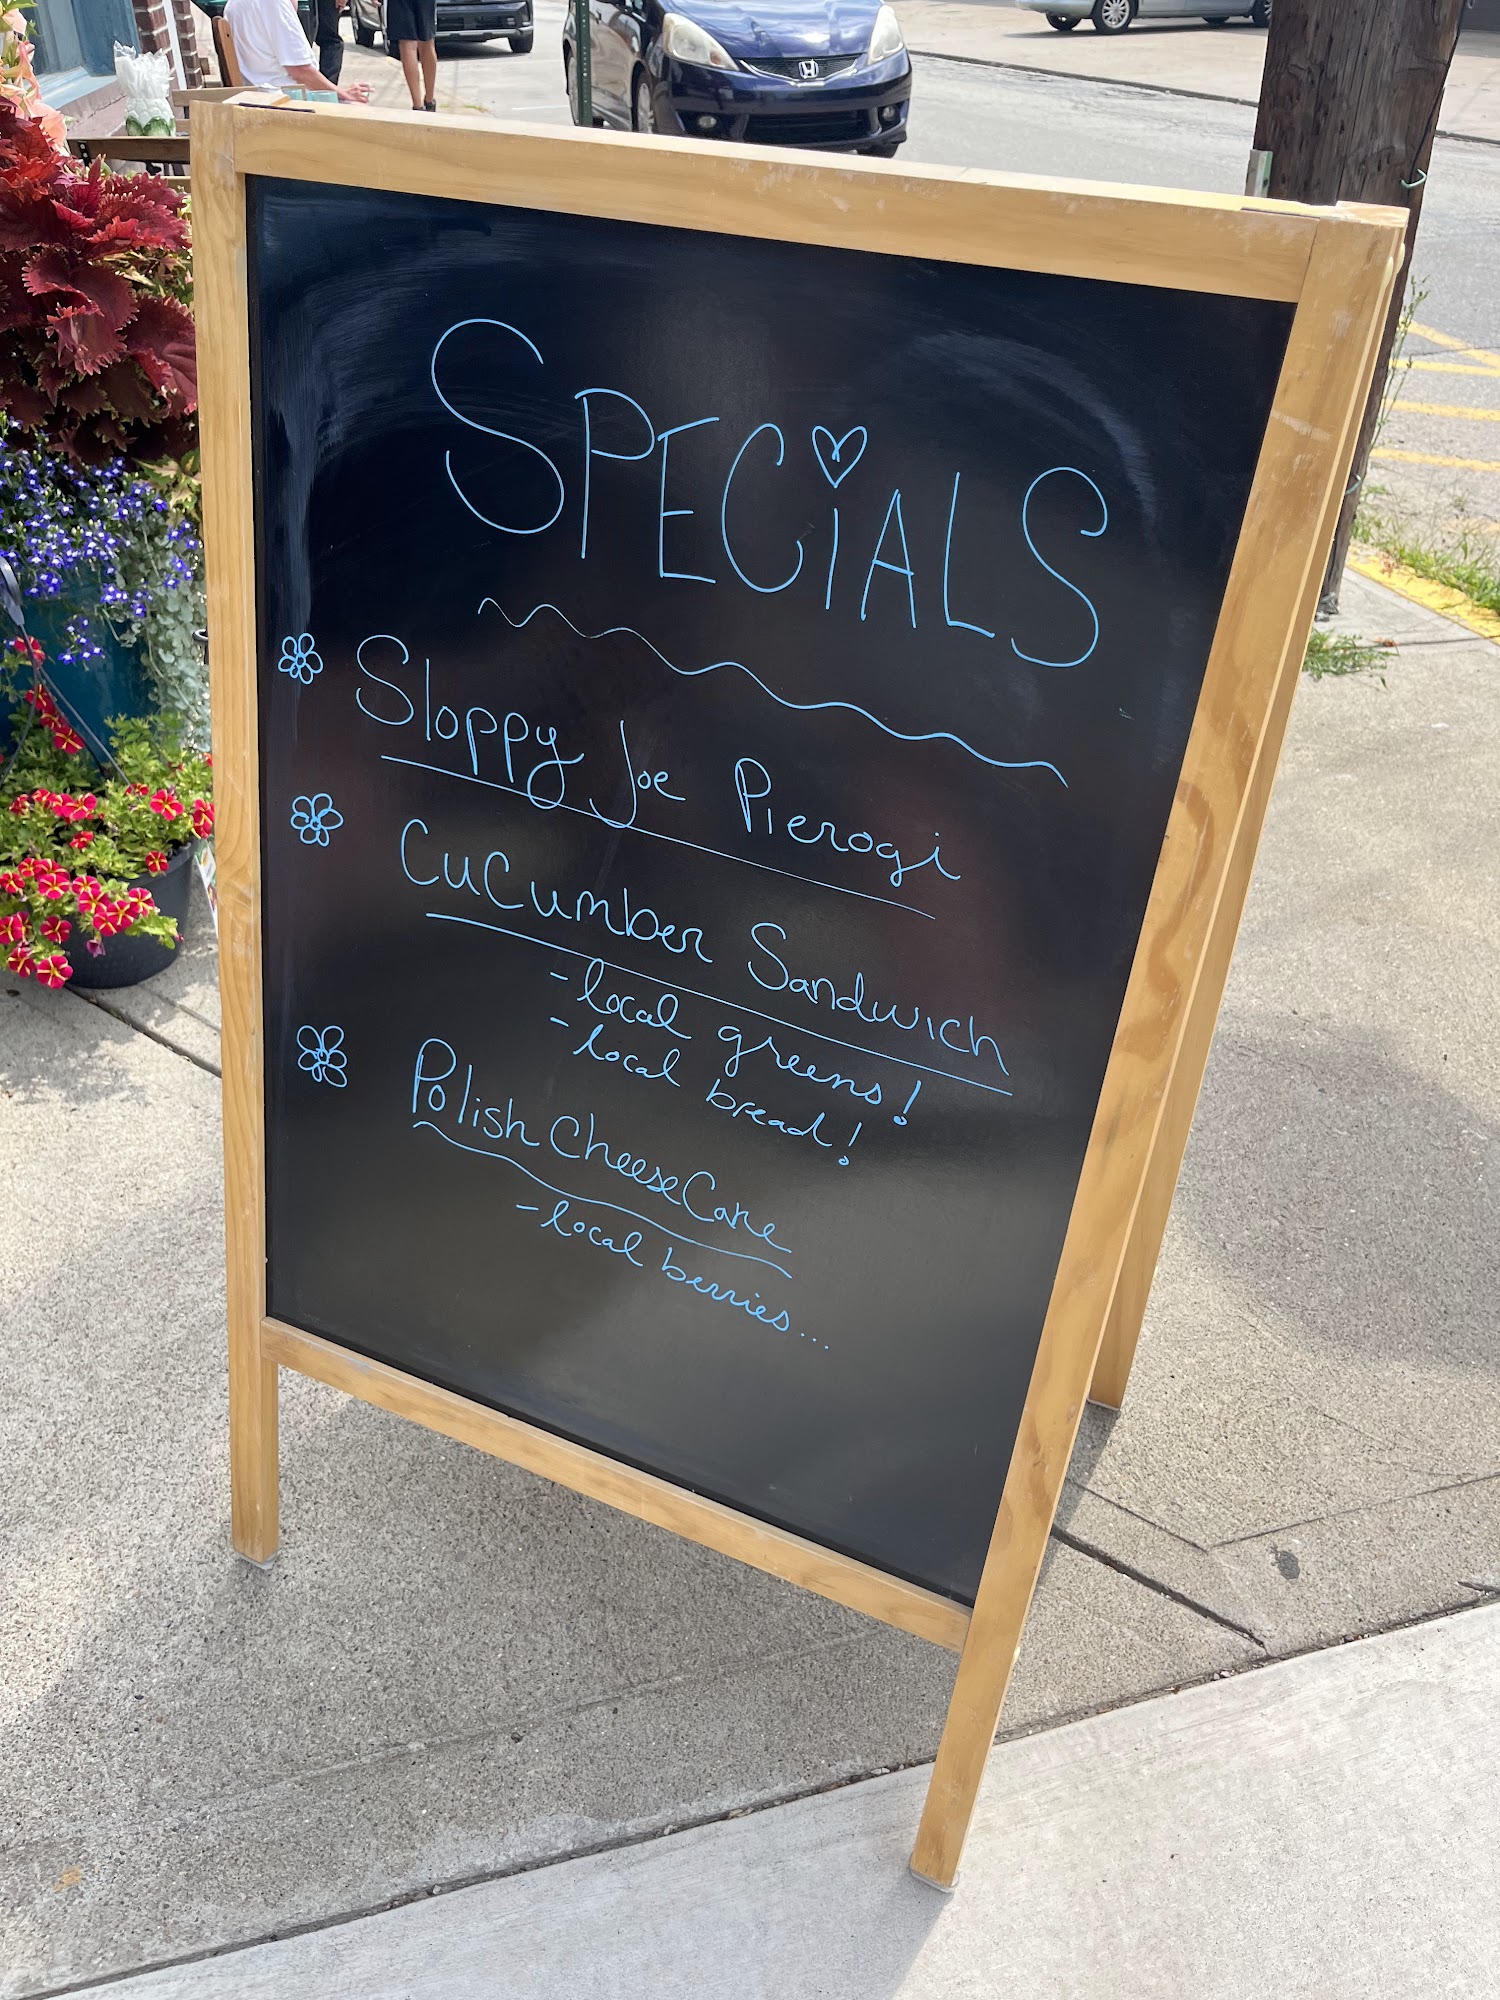 SPECiALS
Sloppy Joe Pierogi
CuCumber Sandwich
- local greens!
- local bread!
Polish CheeseCake
- local berries...